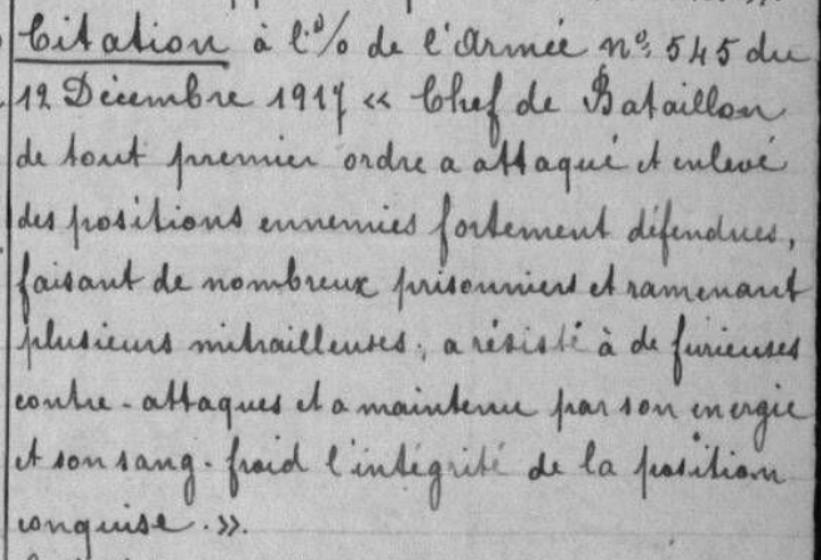 Citation à l'o/o de l'Armée no: 545 du
12 Décembre 1917 « Chef de Bataillon
de tout premier ordre a attaqué et enlevé
des positions ennemies fortement défendues,
faisant de nombreux prisonniers et ramenant
plusieurs mitrailleuses, a résisté à de furieuses
contre-attaques et a maintenu par son energie
et son sang-froid l'intégrité de la position
conquise.».